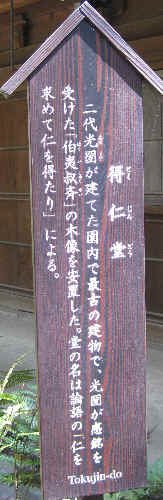 得仁堂
とくにんどう
二代光圀が建てた園内で最古の建物で、光圀が感銘を
受けた「伯夷叔斉」の木像を安置した。堂の名は論語の「仁を
求めて仁を得たり」による。
Tokujin-do